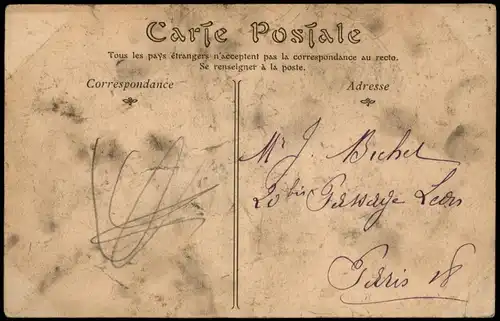 Carte Postale
Tous les pays étrangers n'acceptent pas la correspondance au recto.
Se renseigner à la poste.
Correspondance
Adresse
Mr J. Bichet
20 bis Passage
Paris 18